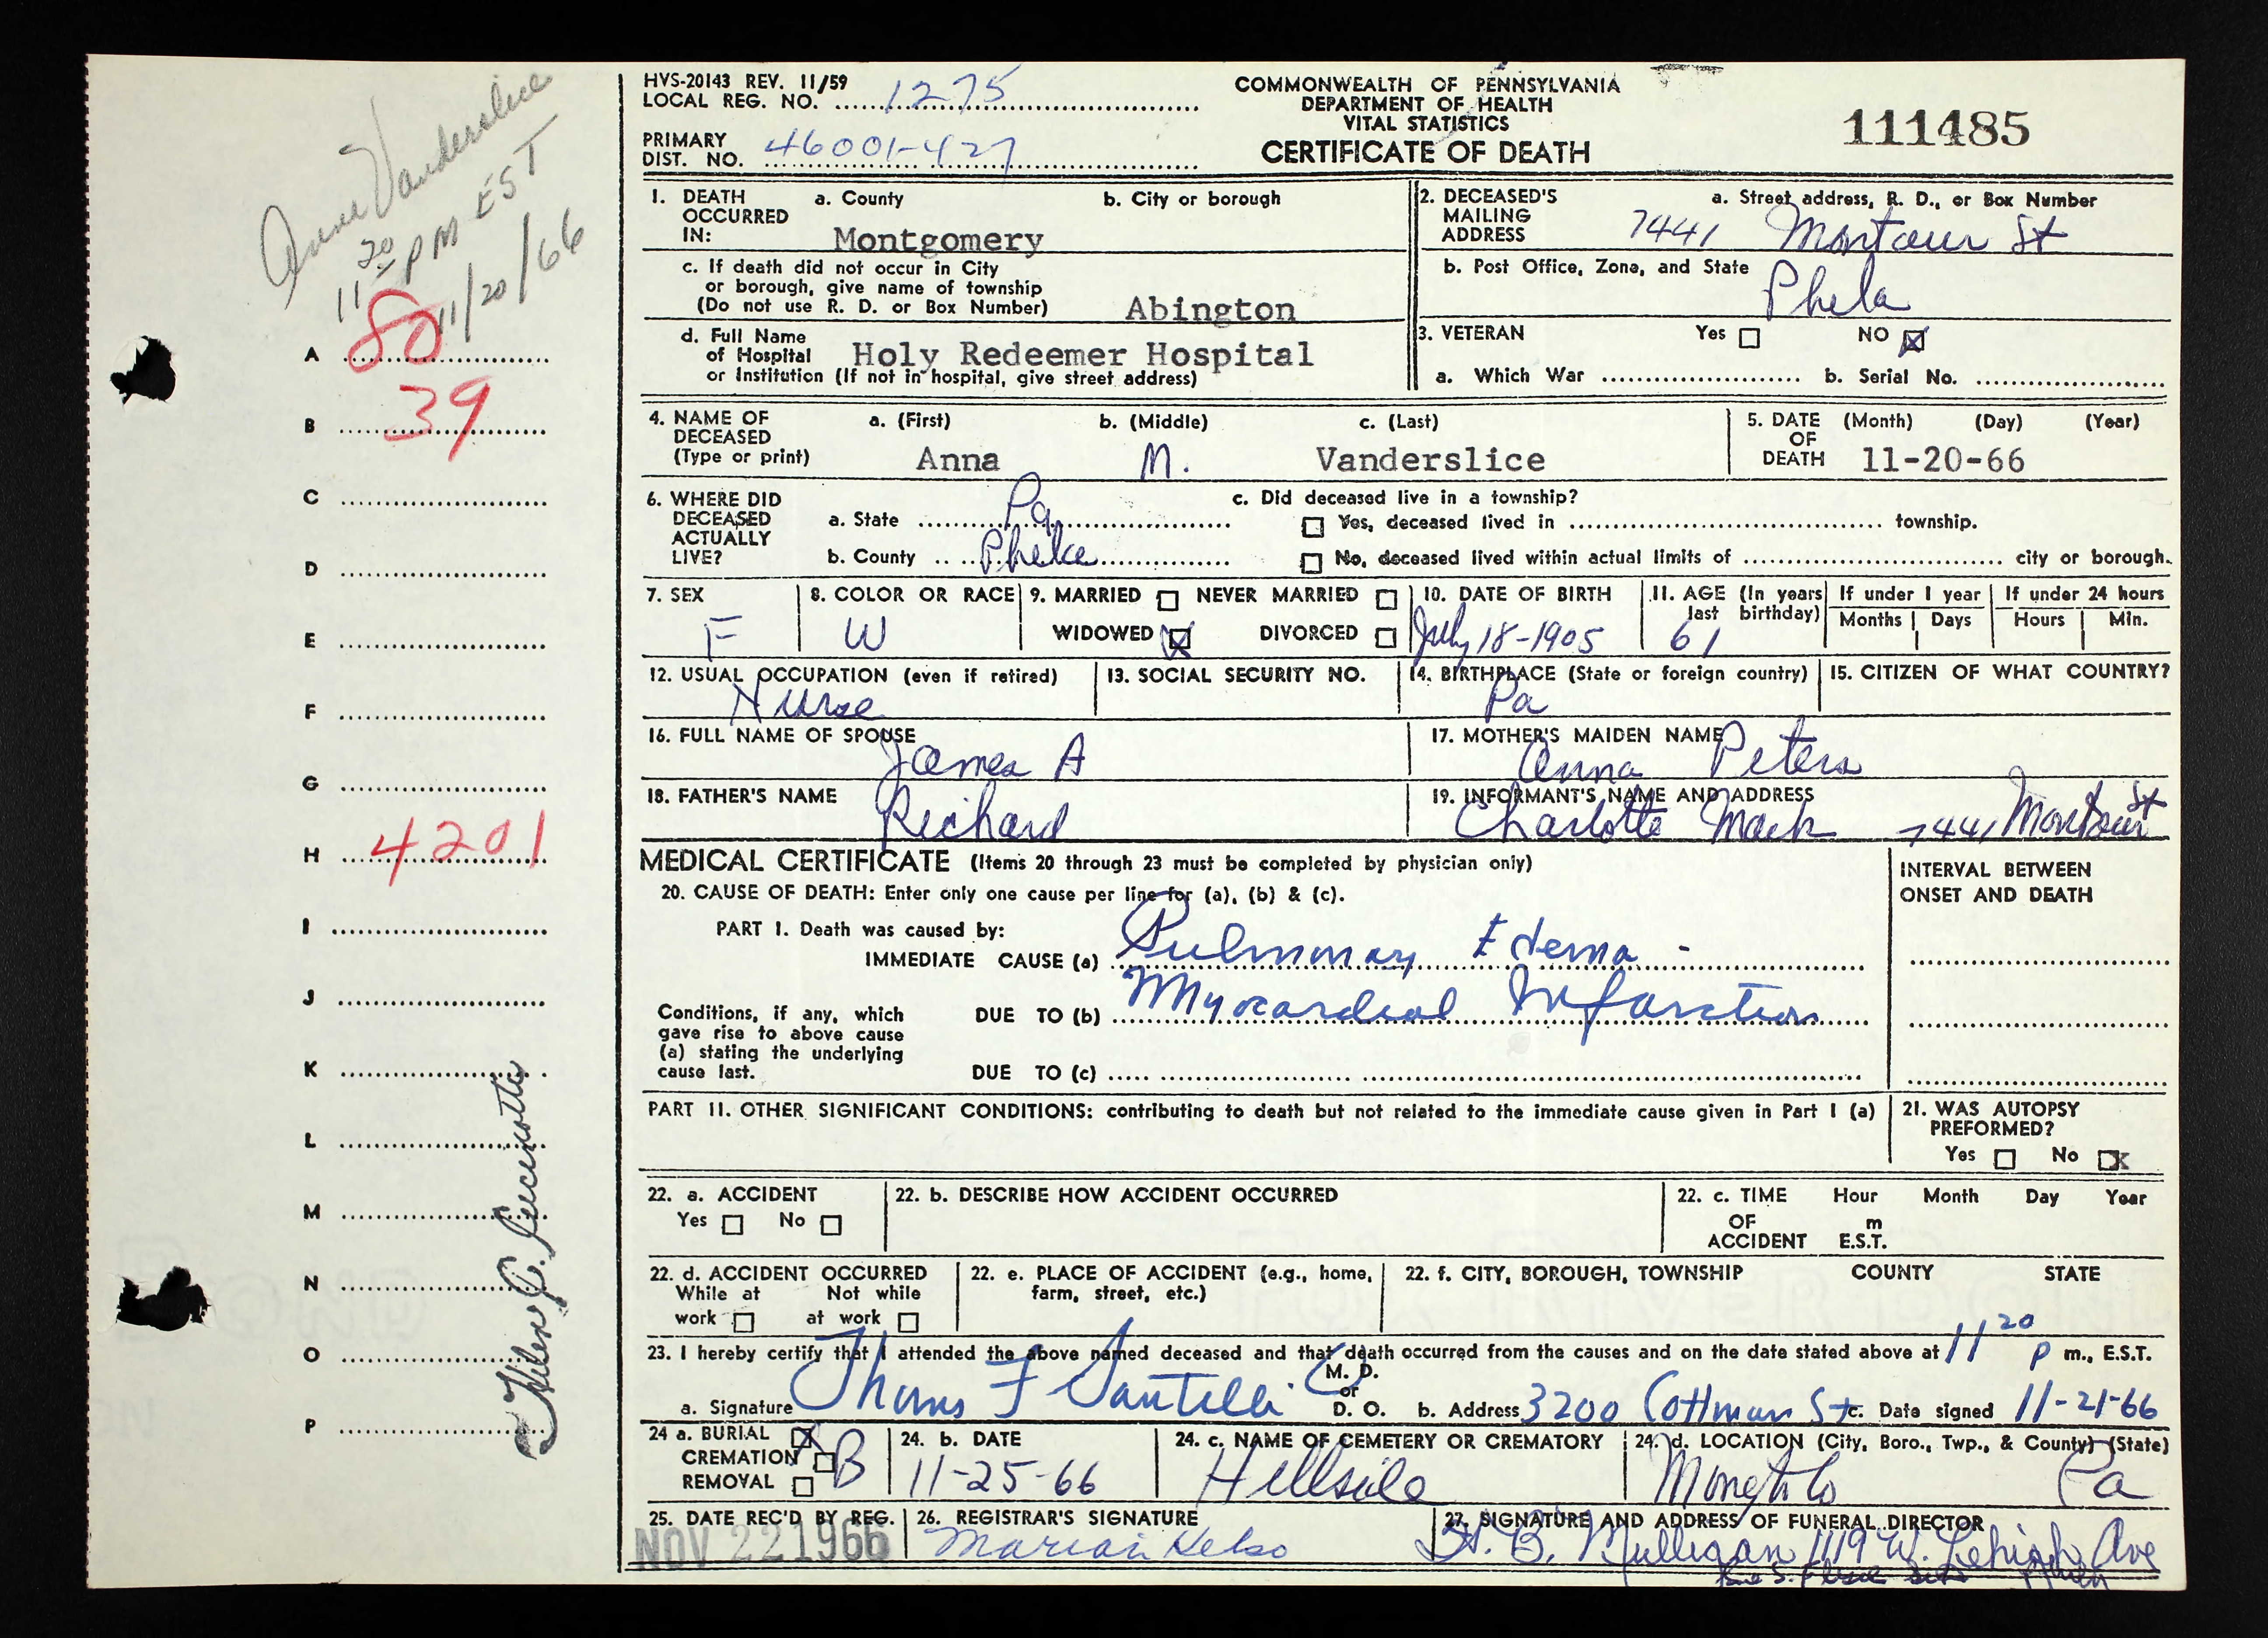 Anna Vanderslice
11 20 PM EST
11/20/66
HVS-20143 REV. 11/59
LOCAL REG. NO. 1275
PRIMARY
DIST. NO. 46001-427
COMMONWEALTH OF PENNSYLVANIA
DEPARTMENT OF HEALTH
VITAL STATISTICS
CERTIFICATE OF DEATH
111485
1. DEATH OCCURRED IN:
a. County
Montgomery
b. City or borough
c. If death did not occur in City
or borough, give name of township
(Do not use R. D. or Box Number)
Abington
d. Full Name
of Hospital Holy Redeemer Hospital
or Institution (If not in hospital, give street address)
2. DECEASED'S MAILING ADDRESS
a. Street address, R. D., or Box Number
7441 Montour St
b. Post Office, Zone, and State
Phila
3. VETERAN Yes NO
a. Which War b. Serial No.
4. NAME OF DECEASED (Type or print)
a. (First) b. (Middle) c. (Last)
Anna M. Vanderslice
5. DATE OF DEATH (Month) (Day) (Year)
11-20-66
6. WHERE DID DECEASED ACTUALLY LIVE?
a. State Pa
b. County Phila
c. Did deceased live in a township?
Yes, deceased lived in township.
No, deceased lived within actual limits of city or borough.
7. SEX
F
8. COLOR OR RACE
W
9. MARRIED NEVER MARRIED
WIDOWED DIVORCED
10. DATE OF BIRTH
July 18-1905
11. AGE (In years last birthday)
61
If under 1 year
Months Days
If under 24 hours
Hours Min.
12. USUAL OCCUPATION (even if retired)
Nurse
13. SOCIAL SECURITY NO.
14. BIRTHPLACE (State or foreign country)
Pa
15. CITIZEN OF WHAT COUNTRY?
16. FULL NAME OF SPOUSE
James A
17. MOTHER'S MAIDEN NAME
Anna Peters
18. FATHER'S NAME
Richard
19. INFORMANT'S NAME AND ADDRESS
Charlotte Mack 7441 Montour St
MEDICAL CERTIFICATE (Items 20 through 23 must be completed by physician only)
20. CAUSE OF DEATH: Enter only one cause per line for (a), (b) & (c).
PART I. Death was caused by:
IMMEDIATE CAUSE (a) Pulmonary Edema -
Conditions, if any, which
gave rise to above cause
(a) stating the underlying
cause last.
DUE TO (b) Myocardial Infarction
DUE TO (c)
INTERVAL BETWEEN
ONSET AND DEATH
PART II. OTHER SIGNIFICANT CONDITIONS: contributing to death but not related to the immediate cause given in Part I (a)
21. WAS AUTOPSY
PREFORMED?
Yes No X
22. a. ACCIDENT
Yes No
22. b. DESCRIBE HOW ACCIDENT OCCURRED
22. c. TIME OF ACCIDENT Hour Month Day Year
m
E.S.T.
22. d. ACCIDENT OCCURRED
While at work Not while at work
22. e. PLACE OF ACCIDENT (e.g., home,
farm, street, etc.)
22. f. CITY, BOROUGH, TOWNSHIP COUNTY STATE
23. I hereby certify that I attended the above named deceased and that death occurred from the causes and on the date stated above at 11 20 P m., E.S.T.
a. Signature Thomas F Santelli M. D. or D. O.
b. Address 3200 Cottman St
c. Date signed 11-21-66
24 a. BURIAL
CREMATION
REMOVAL
B
24. b. DATE
11-25-66
24. c. NAME OF CEMETERY OR CREMATORY
Hillside
24. d. LOCATION (City, Boro., Twp., & County) (State)
Montg Co Pa
25. DATE REC'D BY REG.
NOV 22 1966
26. REGISTRAR'S SIGNATURE
Marian Kelso
27. SIGNATURE AND ADDRESS OF FUNERAL DIRECTOR
H. B. Mulligan 1119 W. Lehigh Ave
A 80
B 39
C
D
E
F
G
H 4201
I
J
K
L
M
N
O
P